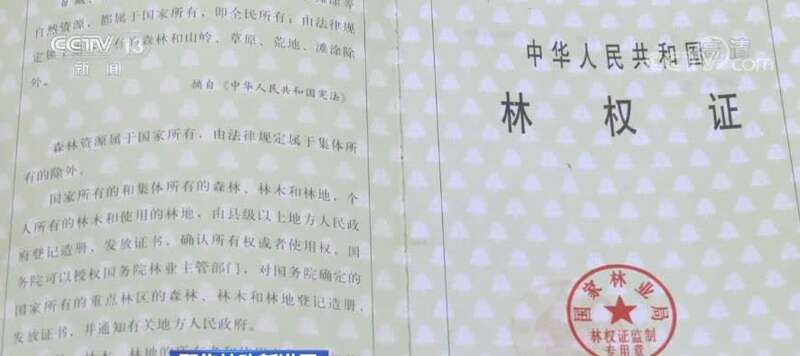 自然资源，都属于国家所有，即全民所有；由法律规
森林和山岭、草原、荒地、滩涂除
外。
摘自《中华人民共和国宪法》
森林资源属于国家所有，由法律规定属于集体所
有的除外。
国家所有的和集体所有的森林、林木和林地，个
人所有的林木和使用的林地，由县级以上地方人民政
府登记造册，发放证书，确认所有权或者使用权。国
务院可以授权国务院林业主管部门，对国务院确定的
国家所有的重点林区的森林、林木和林地登记造册，
发放证书，并通知有关地方人民政府。
中华人民共和国
林权证
国家林业局
林权证监制
专用章
CCTV 13
新闻
CCTV.com
高清